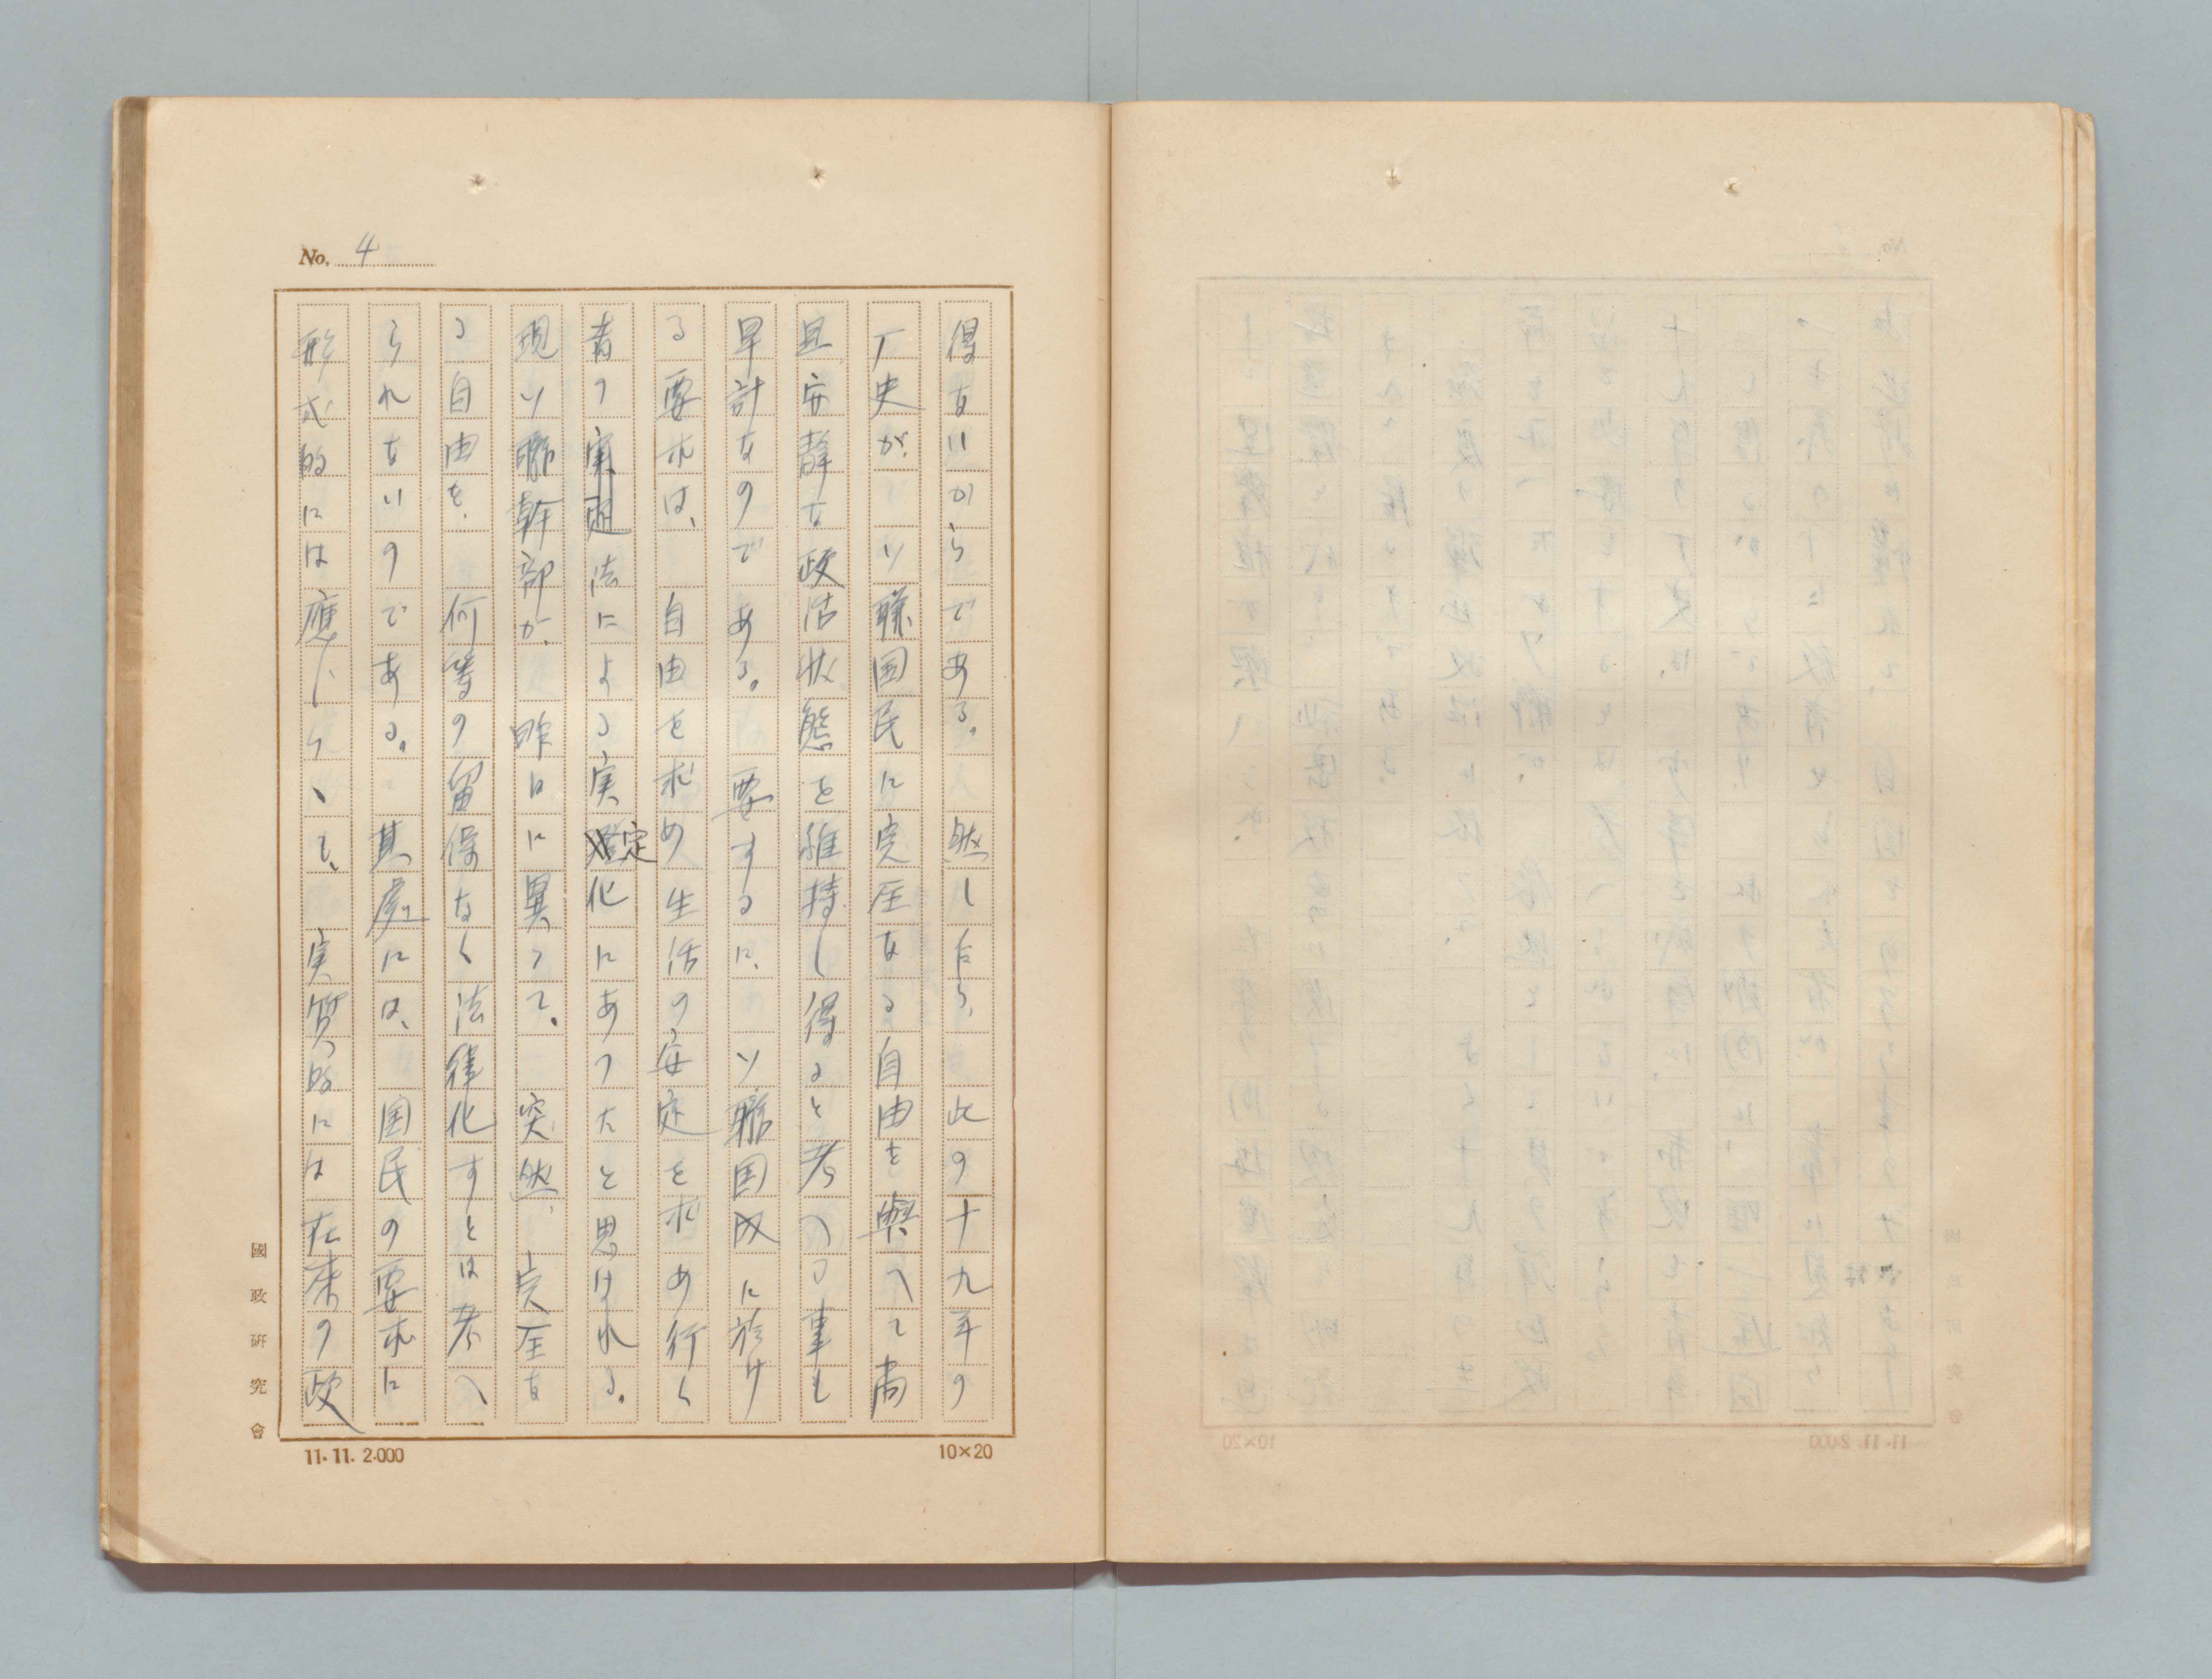 No. 4
得ないからである。然したら、此の十九年の
丆史が、ソ聯国民に完全なる自由を与へて尚
且安静な政治状態を維持し得ると考へる事も
早計なのである。要するに、ソ聯国民に於け
る要求は、自由を求め生活の安定を求め行く
者の実 法による実定化にあつたと思はれる。
現ソ聯幹部が、昨日に異つて、突然、完全な
る自由を、何等の留保なく法律化すとは考へ
られないのである。其処には、国民の要求に
形式的には應じつゝも、実質的には在来の政
國政研究會
11.11. 2.000
10×20